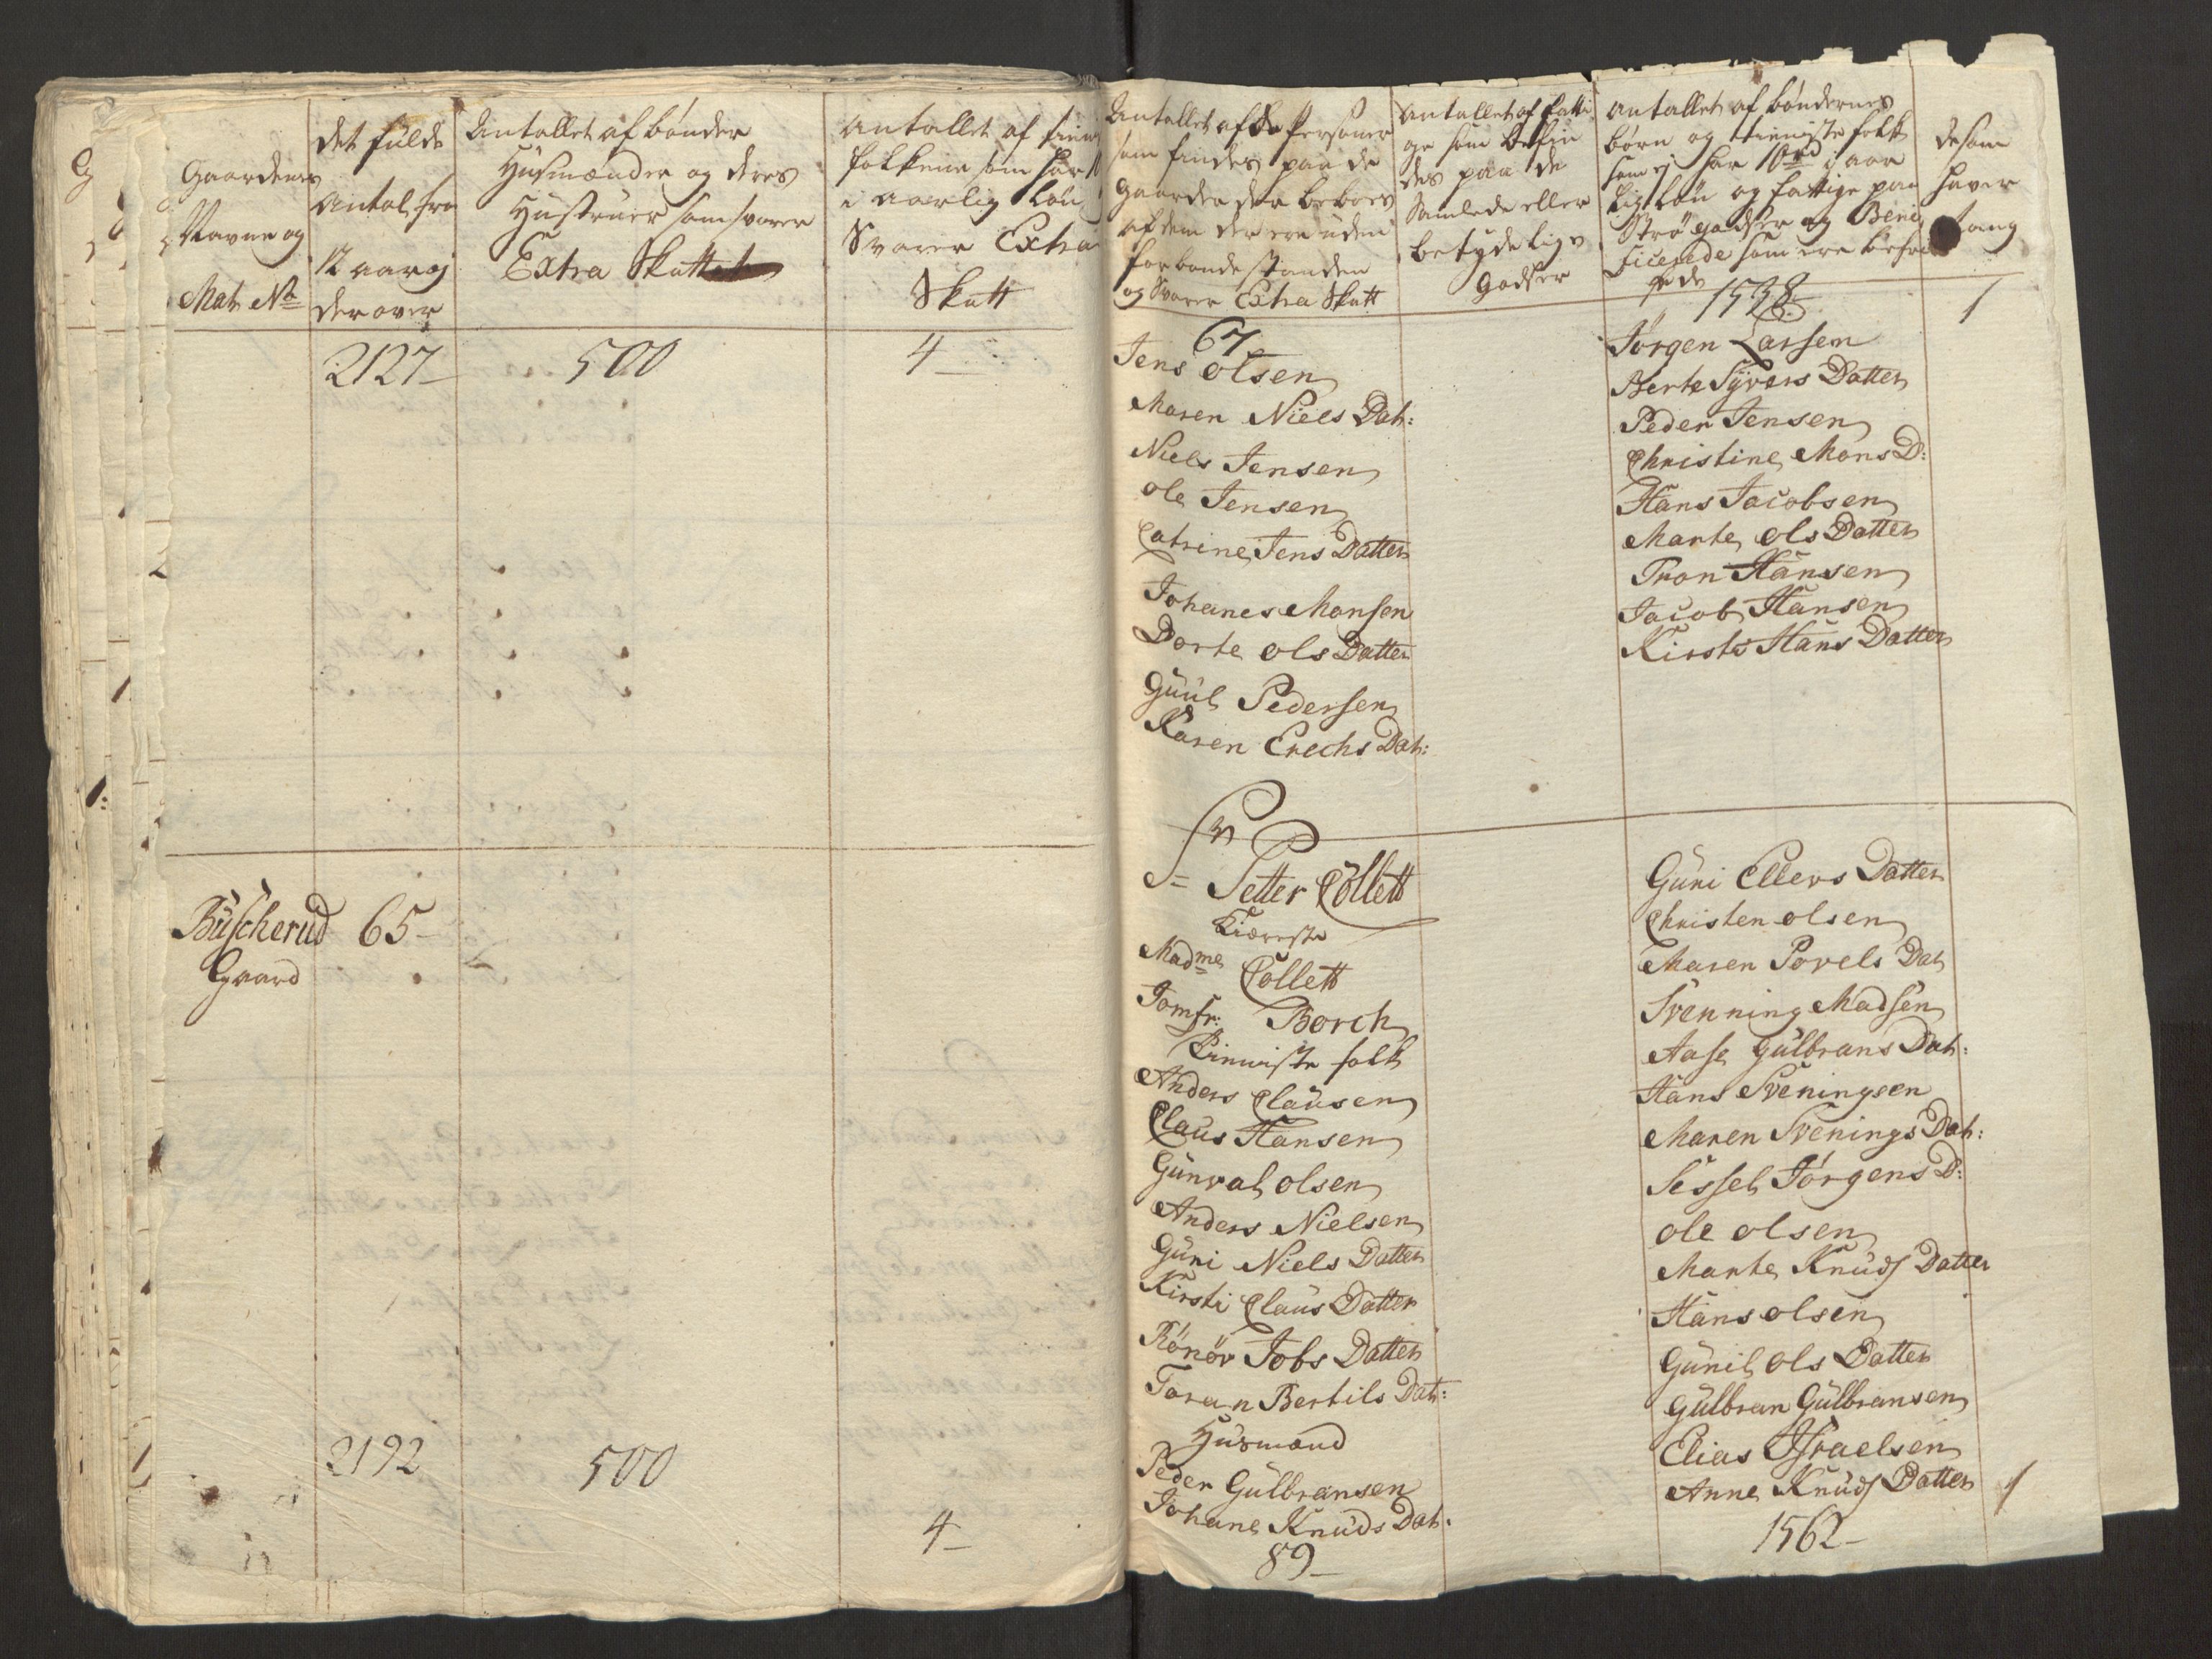 Gaardenes
Navne og
Mat No
det fulde
Antal fra
12 aar og
der over
Antallet af bønder
Husmænder og deres
Hustruer som svarer
Extra Skatt
Antallet af
folkene som har
i aarlig Løn
Svarer Extra
Skatt
2127
500
4
Büscherud 65
Gaard
2192
500
4
Antallet af de Personer
som findes paa de
Gaarder der beboes
af dem der ere uden
for bondestanden
og Svarer Extra Skatt
Antallet af fatti
ge som befin
des paa de
Samlede eller
betydelige
Godser
Antallet af bøndernes
børn og tieniste folk
som ej har 10rd i aar
lig Løn og fattige paa
Strøgodser og Beni
ficerede som ere befri
ede
de som
haver
67
Jens Olsen
Maren Niels Dat:
Niels Jensen
Ole Jensen
Catrine Jens Datter
Johanes Monsen
Dorte Ols Datter
Guul Pedersen
Karen Erechs Dat:
1538
1
Jörgen Larsen
Berte Syvers Datter
Peder Jensen
Christine Mons D:
Hans Jacobsen
Marte Ols Datter
Tron Hansen
Jacob Hansen
Kirste Hans Datter
Sr Petter Collett
Kiæreste
Madme Collett
Jomfr: Borch
Tieniste folk
Anders Clausen
Claus Hansen
Gunval Olsen
Anders Nielsen
Guri Niels Datter
Kirsti Claus Datter
Rönöv Jobs Datter
Taran Bertils Dat:
Husmænd
Peder Gulbransen
Johane Knuds Dat:
89
Guri Ellevs Datter
Christen Olsen
Maren Povels Dat
Svenning Madsen
Aase Gulbrans Dat:
Hans Sveningsen
Maren Svenings Dat:
Sessel Jörgens D:
Ole Olsen
Marte Knuds Datter
Hans Olsen
Gunil Ols Datter
Gulbran Gulbransen
Elias Israelsen
Anne Knuds Datter 1
1562